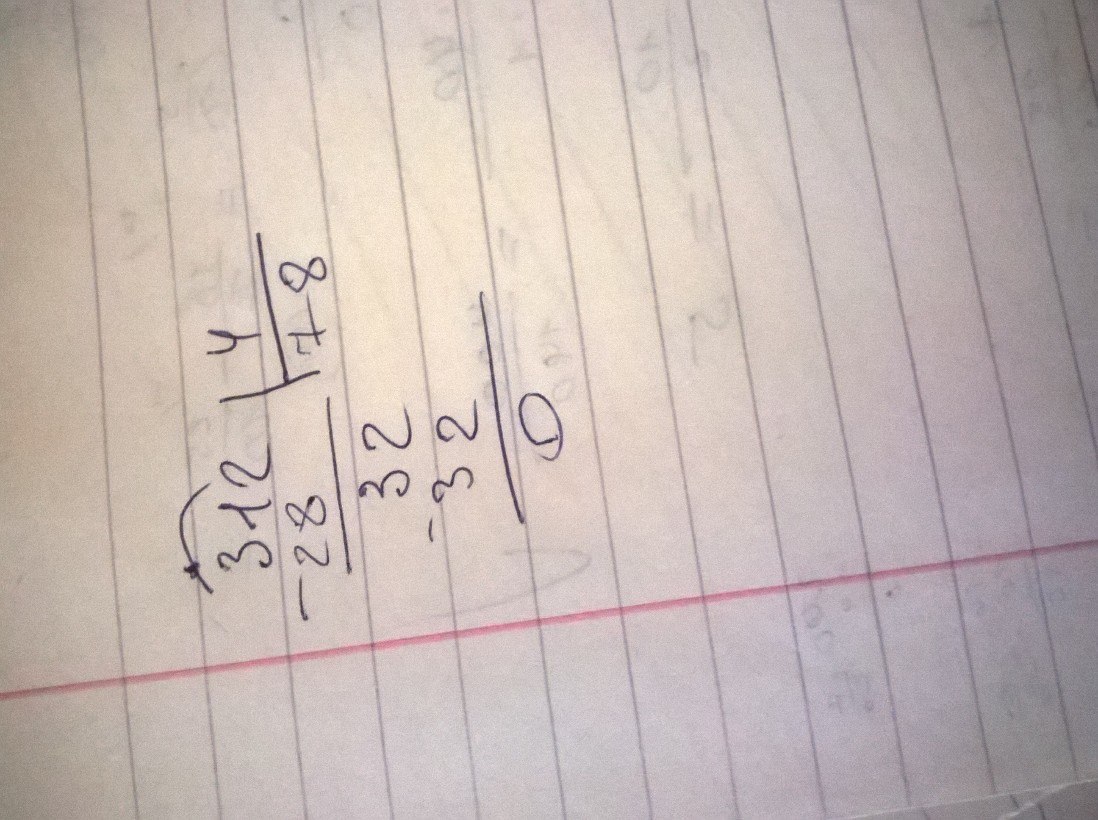 312 | 4
-28 | 78
32
-32
0